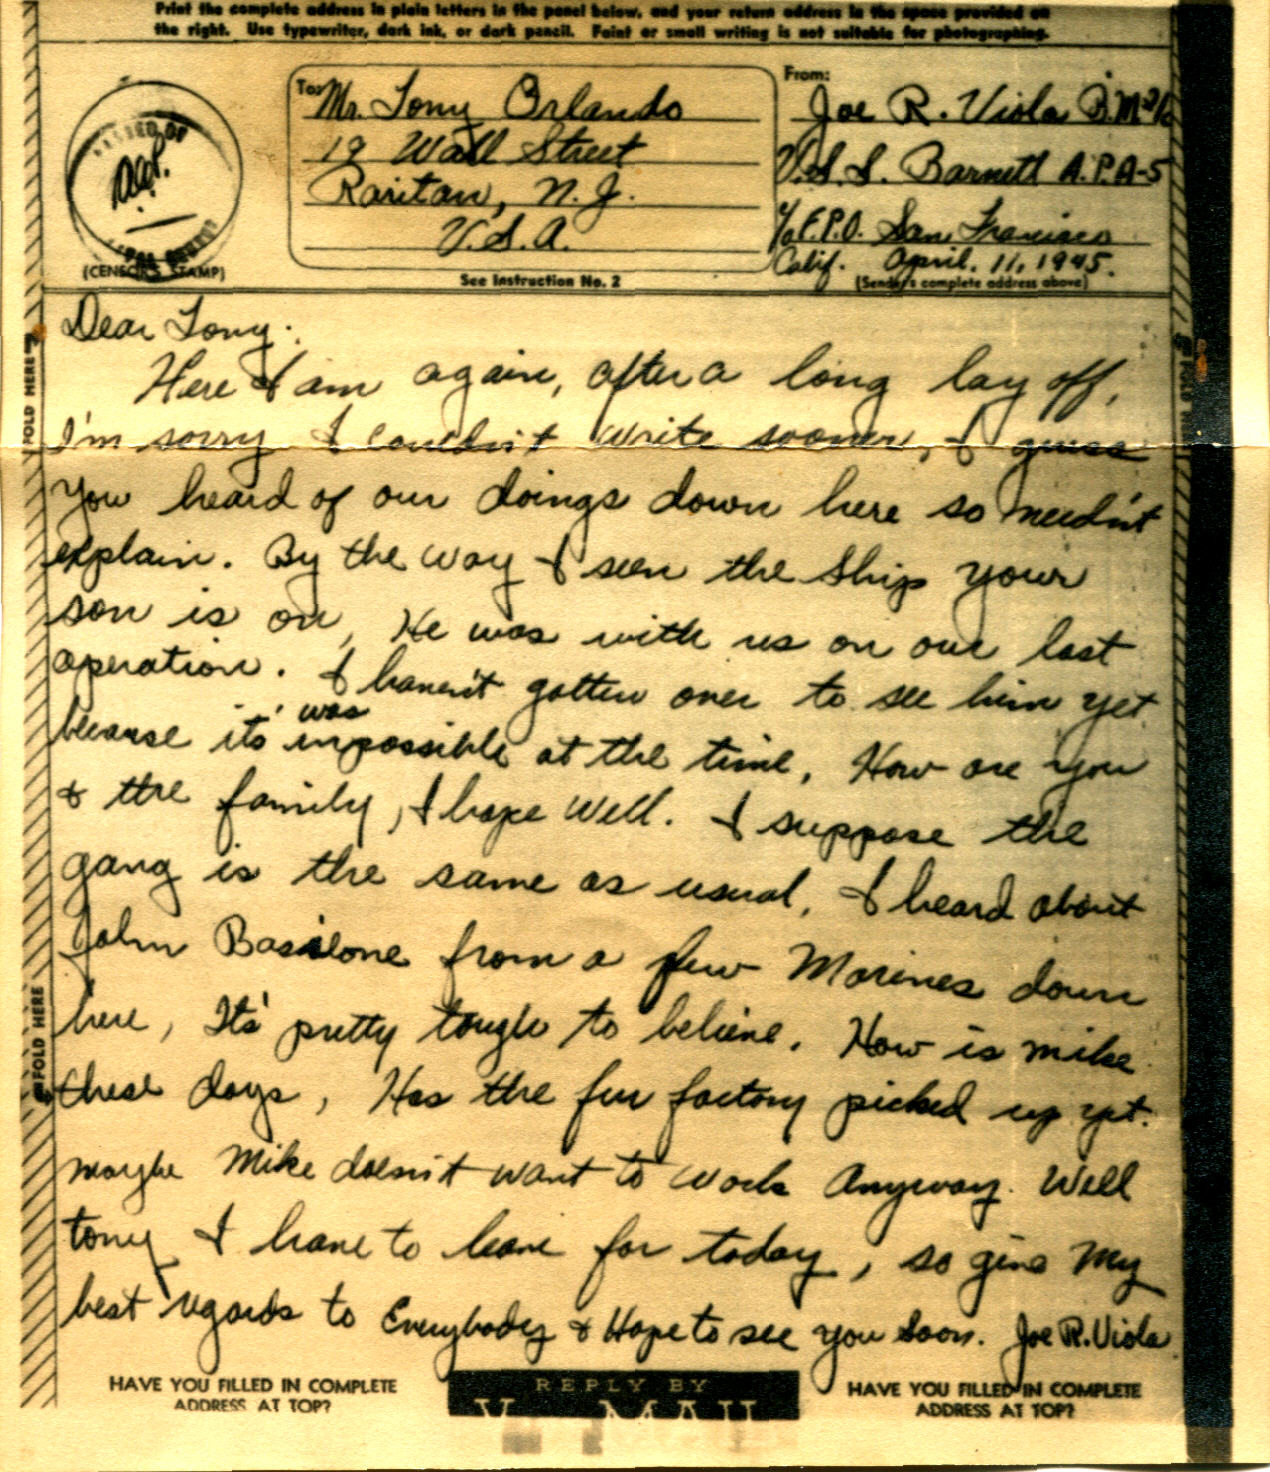 Print the complete address in plain letters in the panel below, and your return address in the space provided on
the right. Use typewriter, dark ink, or dark pencil. Faint or small writing is not suitable for photographing.
To:
Mr. Tony Orlando
19 Wall Street
Raritan, N. J.
U.S.A.
See Instruction No. 2
From:
Joe R. Viola B.M 2/c
U.S.S. Barnett A.P.A-5
c/o F.P.O. San Francisco
Calif. April. 11, 1945.
(Sender's complete address above)
PASSED BY
NAVAL CENSOR
(CENSOR'S STAMP)
Dear Tony:
Here I am again, after a long lay off,
I'm sorry I couldn't write sooner, I guess
you heard of our doings down here so needn't
explain. By the way I seen the ship your
son is on, He was with us on our last
operation. I haven't gotten over to see him yet
because it's was impossible at the time, How are you
& the family, I hope well. I suppose the
gang is the same as usual, I heard about
John Basilone from a few Marines down
here, It's pretty tough to believe. How is mike
these days, Has the fur factory picked up yet.
maybe Mike doesn't want to work Anyway. Well
tony I have to leave for today, so give My
best regards to Everybody & Hope to see you Soon. Joe R. Viola
FOLD HERE
FOLD HERE
FOLD
HAVE YOU FILLED IN COMPLETE
ADDRESS AT TOP?
REPLY BY
V-MAIL
HAVE YOU FILLED IN COMPLETE
ADDRESS AT TOP?